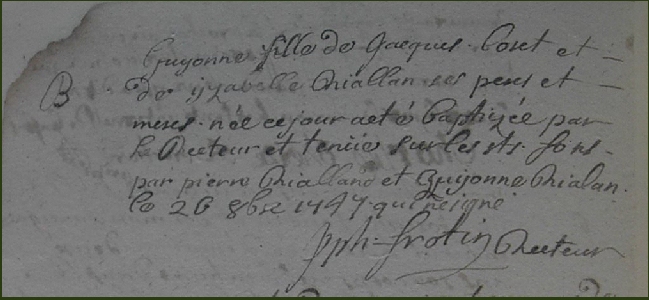 Guyonne fille de Jacques Coret et
B de yzabelle Chiallan ses peres et
meres née ce jour a eté baptizée par
le Recteur et tenüe sur les sts fons
par pierre Chialland et Guyonne Chialan
le 26 8bre 1747 qui ne signe
Jph Frotin Recteur